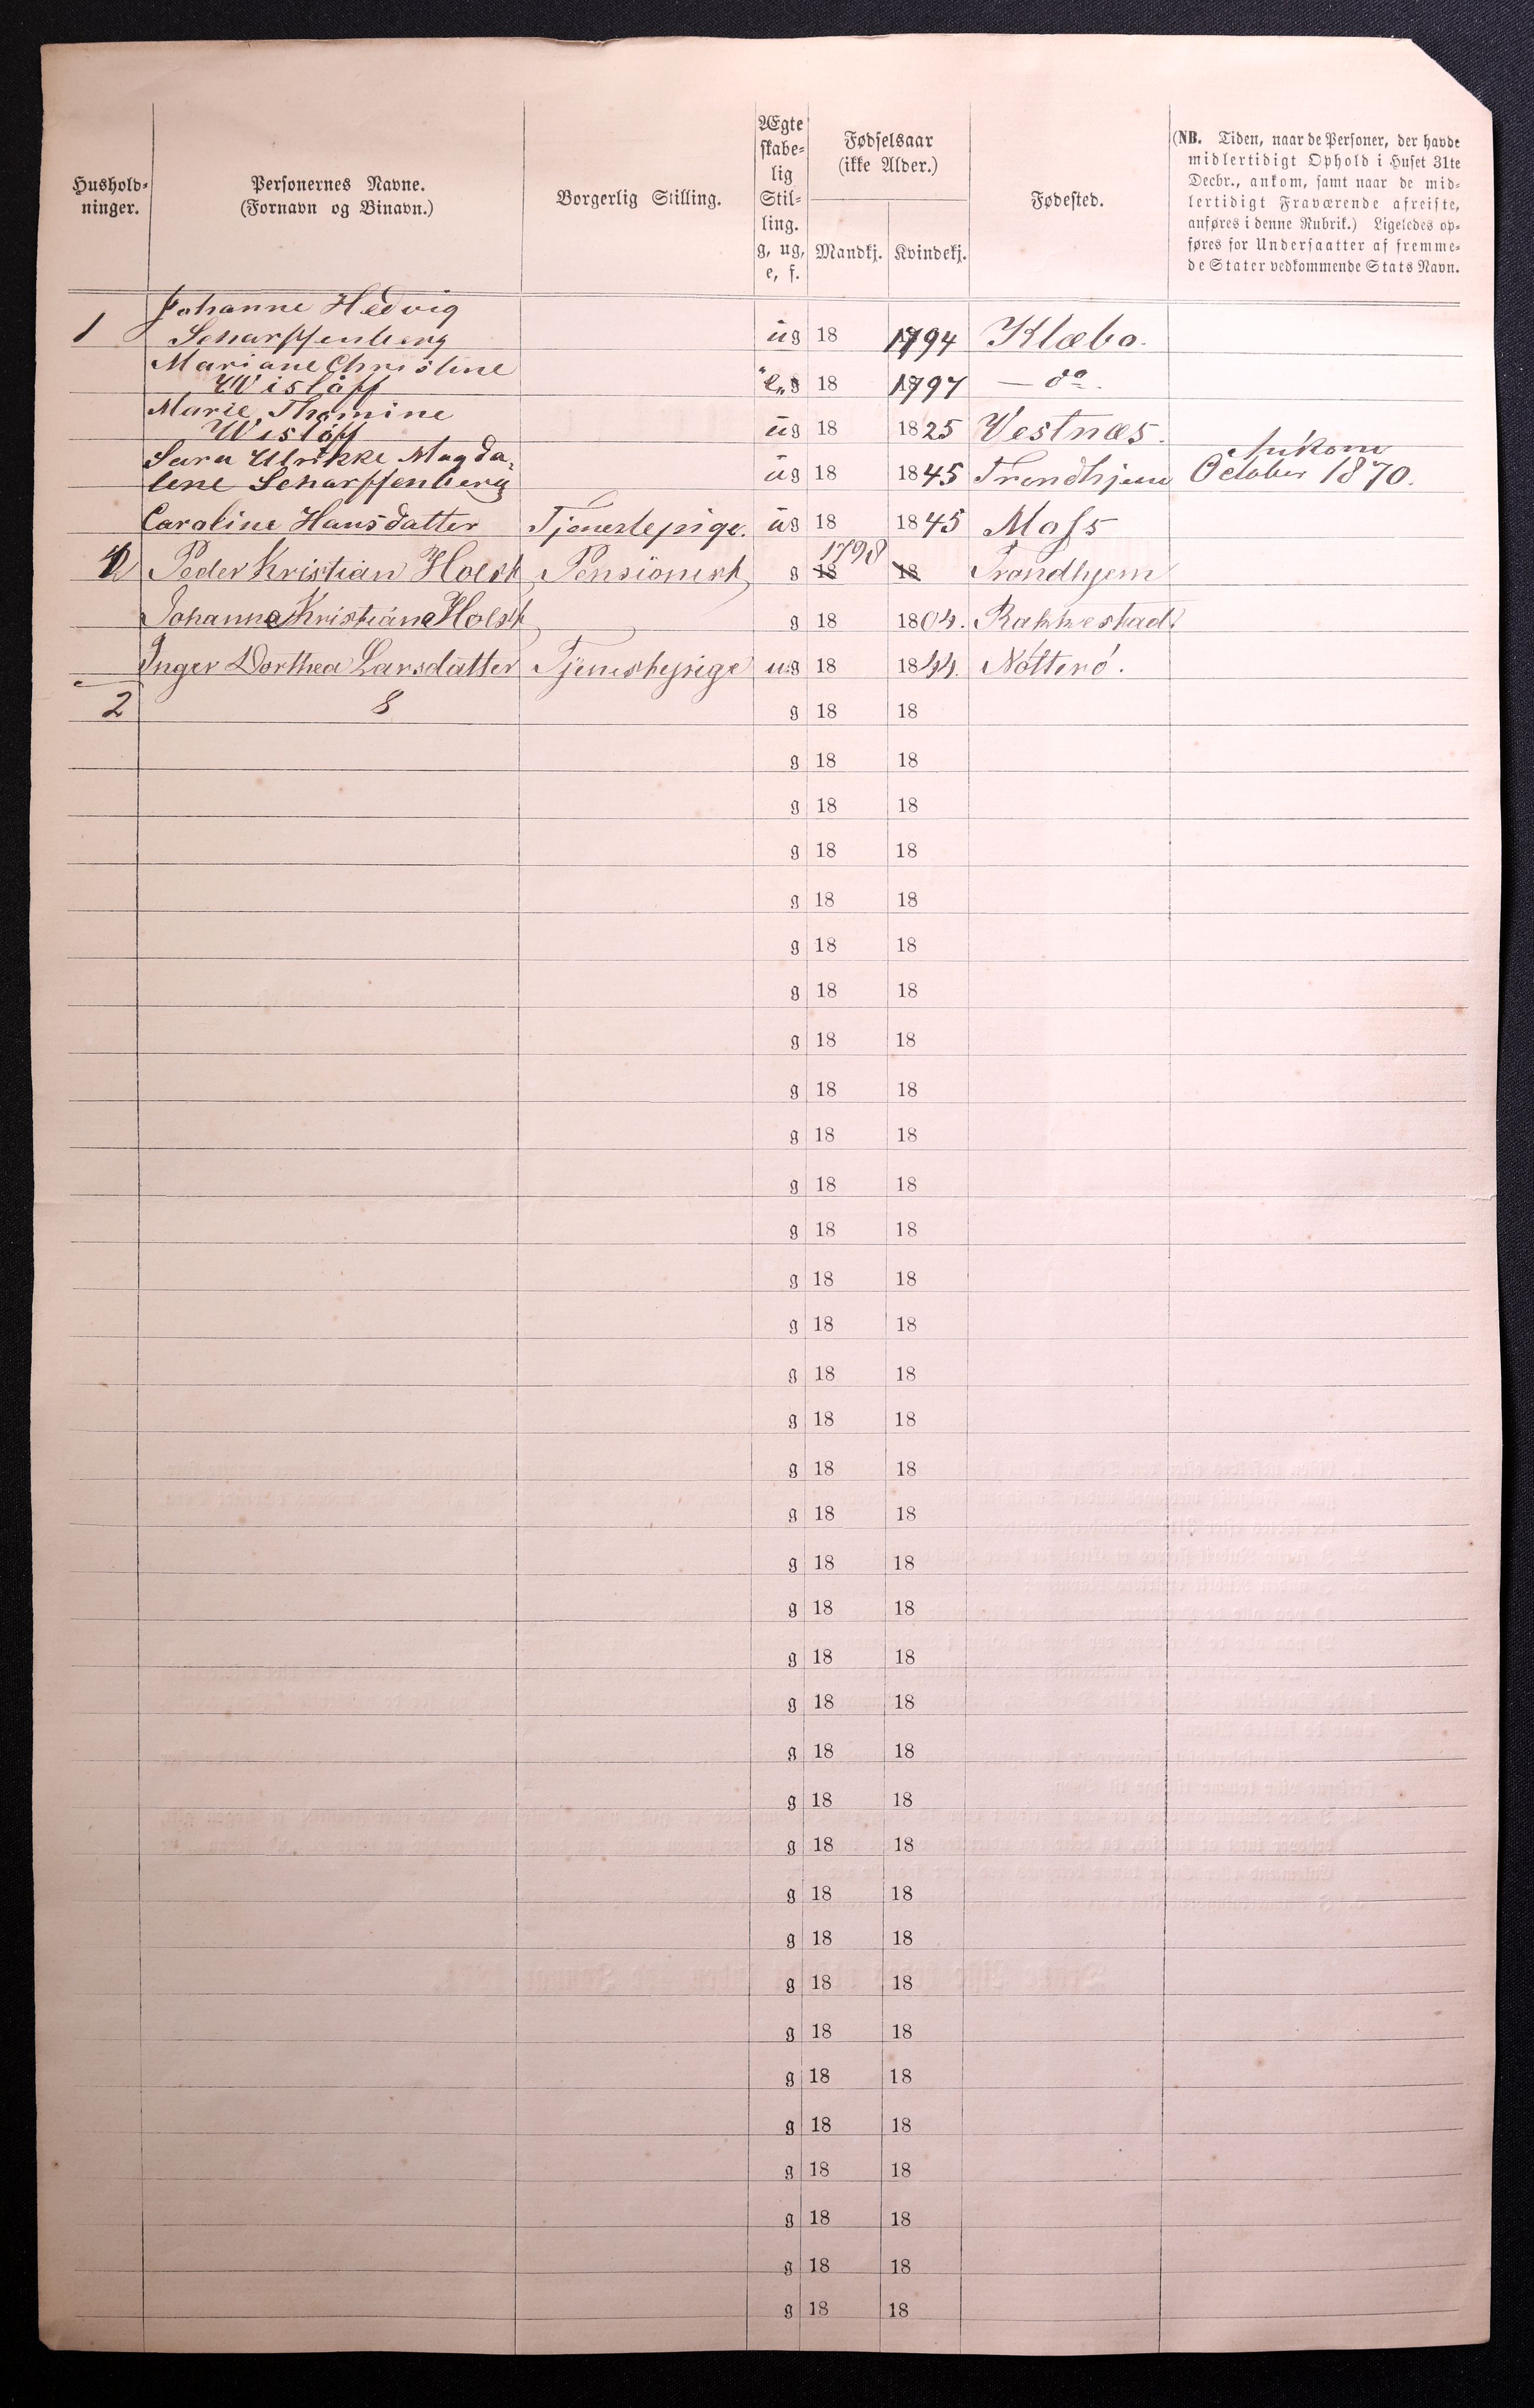 Hushold-
ninger.
Personernes Navne.
(Fornavn og Binavn.)
Borgerlig Stilling.
Ægte
skabe-
lig
Stil-
ling.
g, ug,
e, f.
Fødselsaar
(ikke Alder.)
Mandkj. Kvindekj.
Fødested.
(NB. Tiden, naar de Personer, der havde
midlertidigt Ophold i Huset 31te
Decbr., ankom, samt naar de mid-
lertidigt Fraværende afreiste,
anføres i denne Rubrik.) Ligeledes op-
føres for Undersaatter af fremme-
de Stater vedkommende Stats Navn.
Johanne Hedvig
1 Scharffenberg ug 18 1794 Klæbo.
Mariane Christine
Wisløff e 18 1797 — do.
Marie Thomine
Wisløff ug 18 1825 Vestnæs.
Sara Ulrikke Magda-
lene Scharffenberg ug 18 1845 Trondhjem Ankom October 1870.
Caroline Hansdatter Tjenestepige. ug 18 1845 Moss
2 Peder Kristian Holst Pensionist g 18 1798 18 Trondhjem
Johanne Kristiane Holst g 18 1804. Rakkestad
Inger Dorthea Larsdatter Tjenestepige ug 18 1844. Nötterö.
2 8 g 18 18
g 18 18
g 18 18
g 18 18
g 18 18
g 18 18
g 18 18
g 18 18
g 18 18
g 18 18
g 18 18
g 18 18
g 18 18
g 18 18
g 18 18
g 18 18
g 18 18
g 18 18
g 18 18
g 18 18
g 18 18
g 18 18
g 18 18
g 18 18
g 18 18
g 18 18
g 18 18
g 18 18
g 18 18
g 18 18
g 18 18
g 18 18
g 18 18
g 18 18
g 18 18